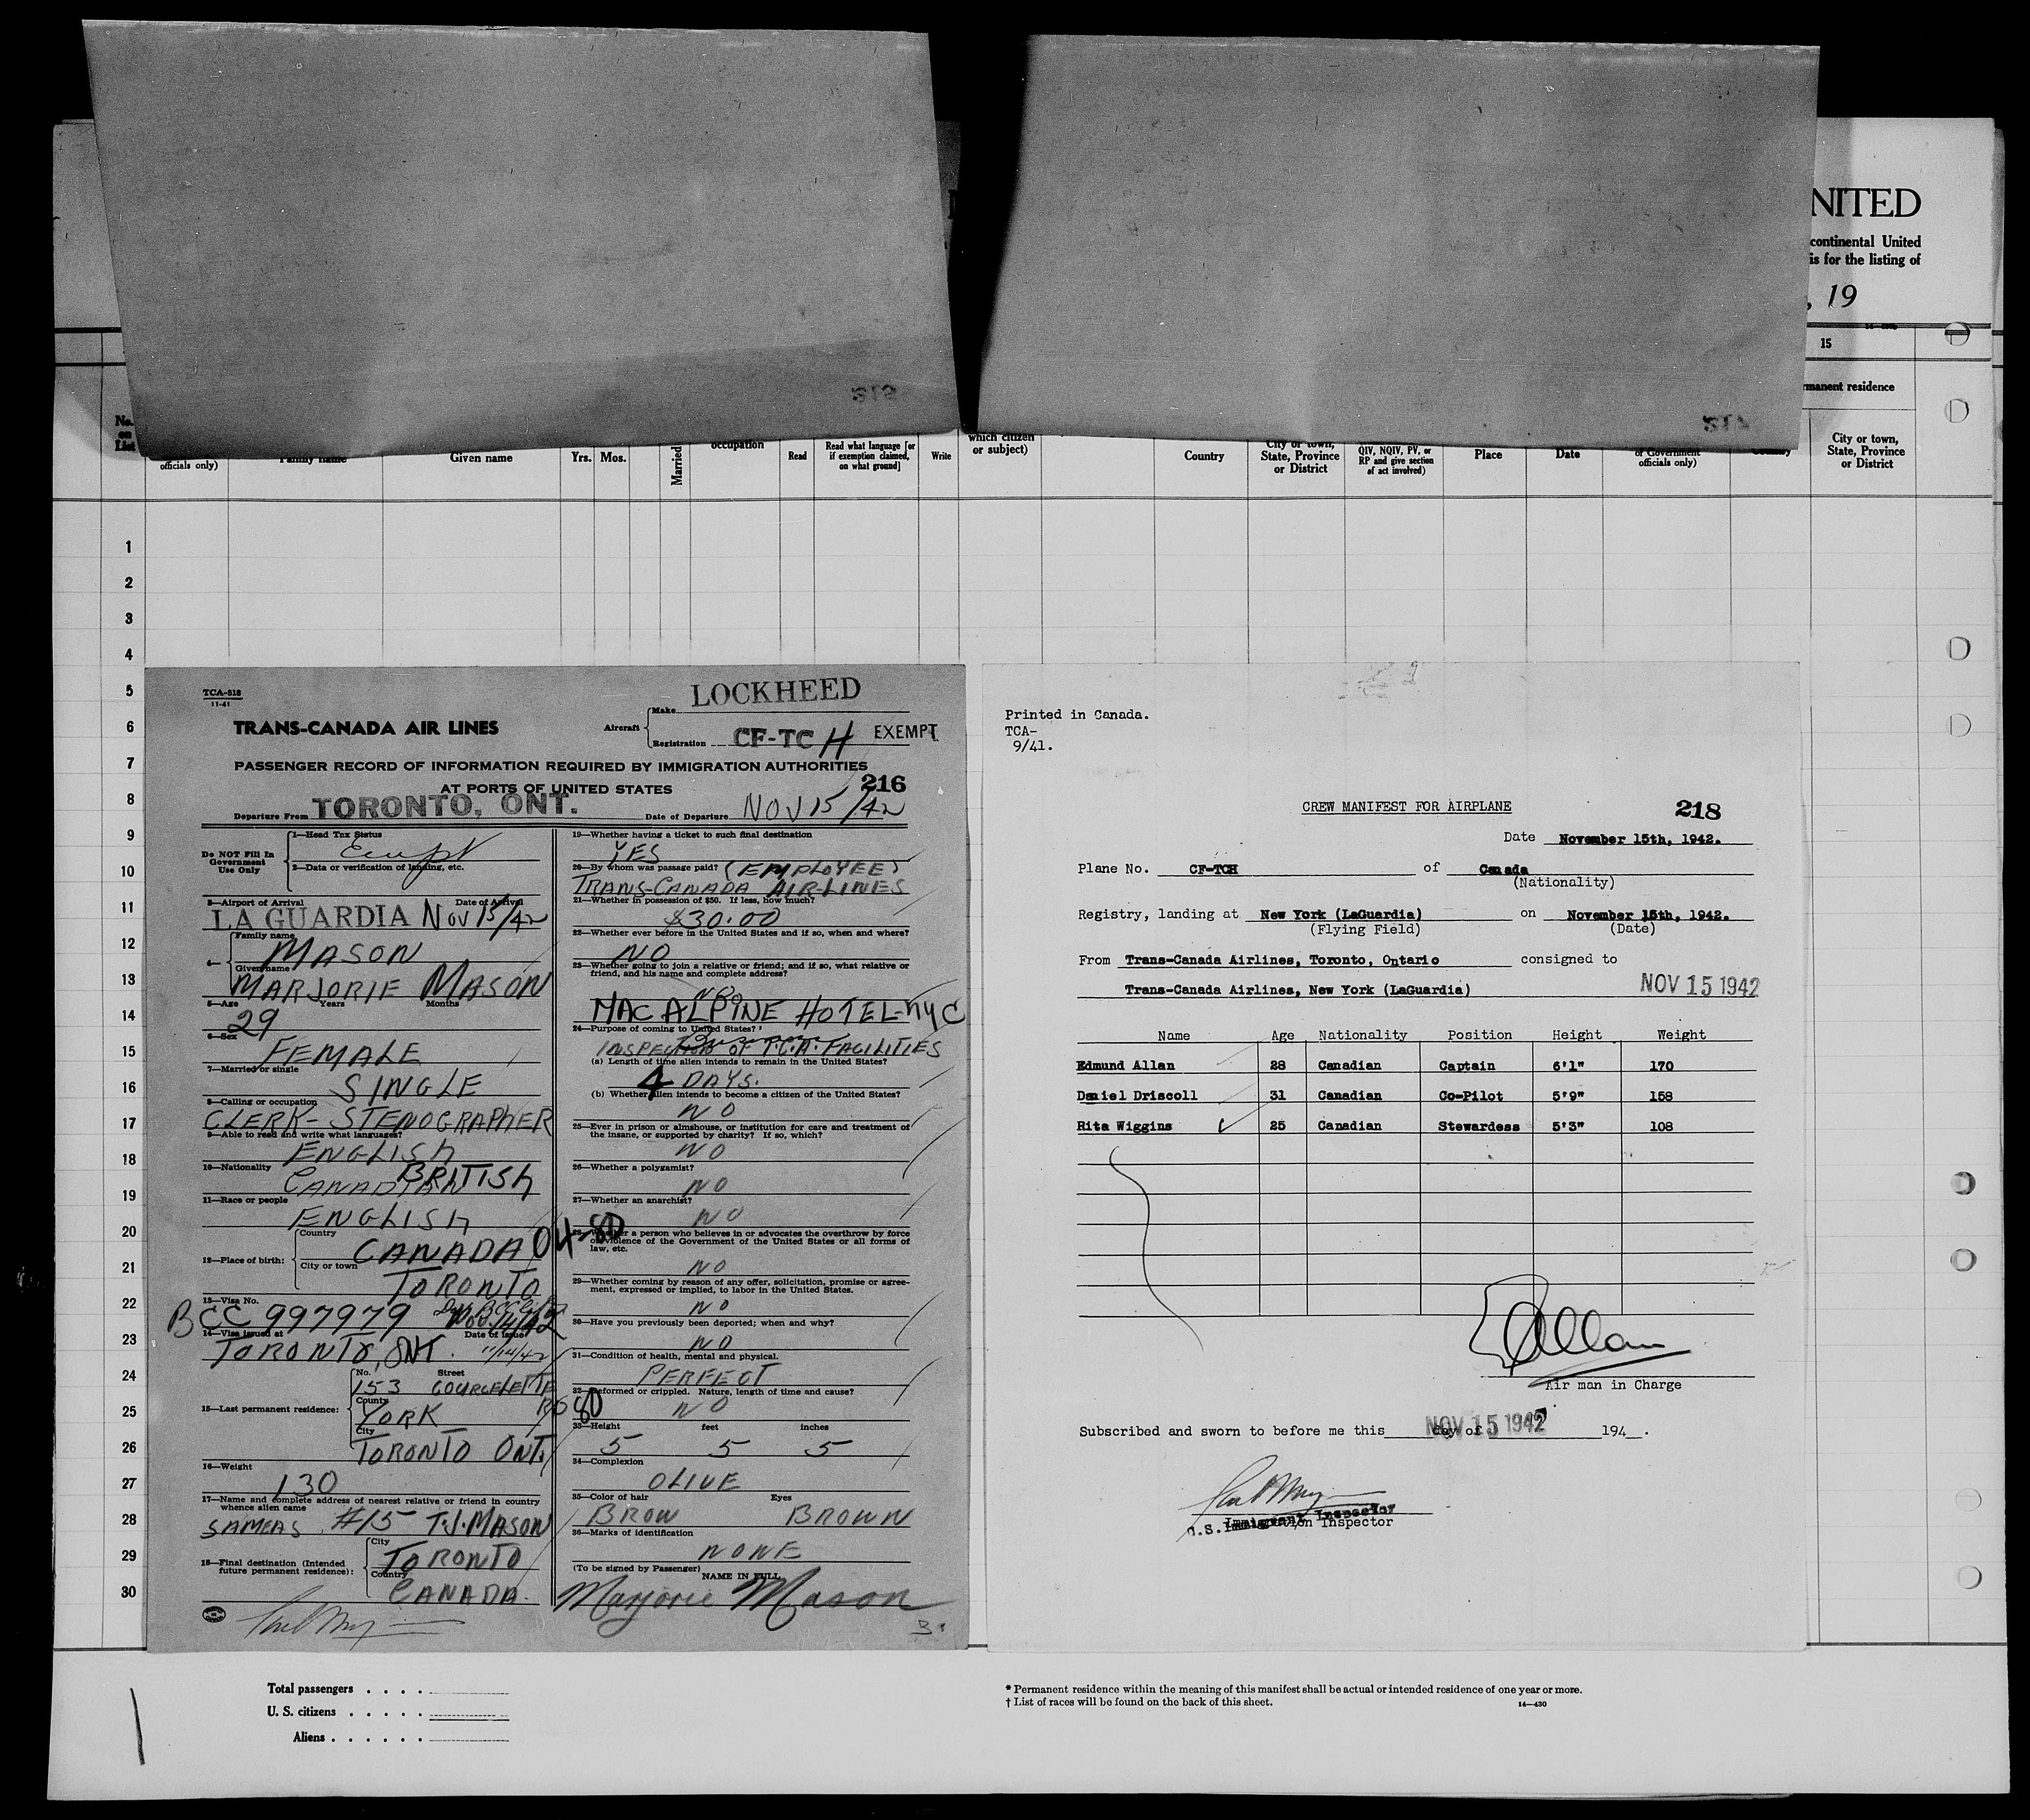 NITED
continental United
is for the listing of
, 19
15
rmanent residence
No. on List
officials only)
Family name
Given name
Yrs.
Mos.
Married
occupation
Read
Read what language [or if exemption claimed, on what ground]
Write
which citizen or subject)
Country
City or town, State, Province or District
QIV, NQIV, PV, or RP and give section of act involved)
Place
Date
of Government officials only)
Country
City or town, State, Province or District
1
2
3
4
5
6
7
8
9
10
11
12
13
14
15
16
17
18
19
20
21
22
23
24
25
26
27
28
29
30
TCA-518
11-41
TRANS-CANADA AIR LINES
Aircraft
Make LOCKHEED
Registration CF-TC H EXEMPT
PASSENGER RECORD OF INFORMATION REQUIRED BY IMMIGRATION AUTHORITIES
AT PORTS OF UNITED STATES
216
Departure From TORONTO, ONT. Date of Departure NOV 15/42
Do NOT Fill In Government Use Only
1—Head Tax Status
Exempt
2—Data or verification of landing, etc.
3—Airport of Arrival Date of Arrival
LA GUARDIA Nov 15/42
4— Family name
MASON
Given name
MARJORIE MASON
5—Age Years Months
29
6—Sex
FEMALE
7—Married or single
SINGLE
8—Calling or occupation
CLERK-STENOGRAPHER
9—Able to read and write what languages?
ENGLISH
10—Nationality
CANADIAN BRITISH
11—Race or people
ENGLISH
12—Place of birth:
Country
CANADA 04-80
City or town
TORONTO
13—Visa No.
BCC 997979 Nov. 14/42
14—Visa issued at Date of Issue
TORONTO, ONT. 11/14/42
15—Last permanent residence:
No. Street
153 COURCELETTE
County
YORK RO 80
City
TORONTO ONT.
16—Weight
130
17—Name and complete address of nearest relative or friend in country whence alien came
SAME AS #15 T.J. MASON
18—Final destination (Intended future permanent residence):
City
TORONTO
Country
CANADA.
19—Whether having a ticket to such final destination
YES
20—By whom was passage paid? (EMPLOYEE)
TRANS-CANADA AIR-LINES
21—Whether in possession of $50. If less, how much?
$30.00
22—Whether ever before in the United States and if so, when and where?
NO
23—Whether going to join a relative or friend; and if so, what relative or friend, and his name and complete address?
NO
MACALPINE HOTEL-NYC
24—Purpose of coming to United States?
INSPECTION OF T.C.A. FACILITIES
(a) Length of time alien intends to remain in the United States?
4 DAYS.
(b) Whether alien intends to become a citizen of the United States?
NO
25—Ever in prison or almshouse, or institution for care and treatment of the insane, or supported by charity? If so, which?
NO
26—Whether a polygamist?
NO
27—Whether an anarchist?
NO
28—Whether a person who believes in or advocates the overthrow by force or violence of the Government of the United States or all forms of law, etc.
NO
29—Whether coming by reason of any offer, solicitation, promise or agreement, expressed or implied, to labor in the United States.
NO
30—Have you previously been deported; when and why?
NO
31—Condition of health, mental and physical.
PERFECT
32—Deformed or crippled. Nature, length of time and cause?
NO
33—Height feet inches
5 5 5
34—Complexion
OLIVE
35—Color of hair Eyes
BROW BROWN
36—Marks of identification
NONE
(To be signed by Passenger) NAME IN FULL
Marjorie Mason
Printed in Canada.
TCA-
9/41.
CREW MANIFEST FOR AIRPLANE
218
Date November 15th, 1942.
Plane No. CF-TCH of Canada
(Nationality)
Registry, landing at New York (LaGuardia) on November 15th, 1942.
(Flying Field) (Date)
From Trans-Canada Airlines, Toronto, Ontario consigned to
Trans-Canada Airlines, New York (LaGuardia) NOV 15 1942
Name Age Nationality Position Height Weight
Edmund Allan 28 Canadian Captain 6'1" 170
Daniel Driscoll 31 Canadian Co-Pilot 5'9" 158
Rita Wiggins 25 Canadian Stewardess 5'3" 108
E Allan
Air man in Charge
Subscribed and sworn to before me this day of NOV 15 1942 194 .
U.S. Immigrant Inspector
Immigration Inspector
Total passengers . . . .
U. S. citizens . . . . .
Aliens . . . . . .
* Permanent residence within the meaning of this manifest shall be actual or intended residence of one year or more.
† List of races will be found on the back of this sheet. 14—430